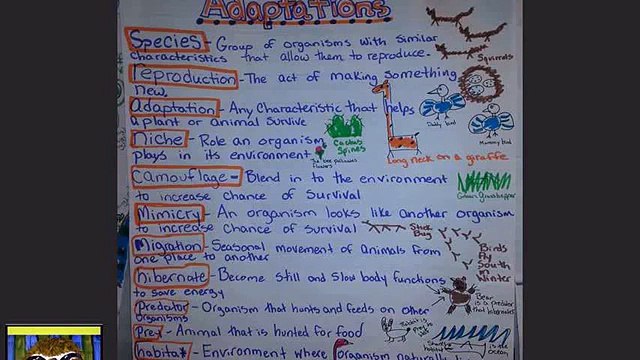 Adaptations
Species - Group of organisms with similar
characteristics that allow them to reproduce.
Squirrels
reproduction - The act of making something
new.
Daddy bird
Mommy bird
Adaptation - Any characteristic that helps
a plant or animal survive
Cactus
Spines
Niche - Role an organism
plays in its environment
The bee pollinates
flowers
Long neck on a giraffe
Camouflage - Blend in to the environment
to increase chance of survival
Green Grasshopper
Mimicry - An organism looks like another organism
to increase chance of survival
Stick
Bug
Migration - Seasonal movement of animals from
one place to another
Birds
fly
South
in
Winter
hibernate - Become still and slow body functions
to save energy
Bear
is a predator
that hibernates
Predator - Organism that hunts and feeds on other
organisms
Prey - Animal that is hunted for food
Rabbit is
prey to
is the
ocean
habitat - Environment where organism naturally